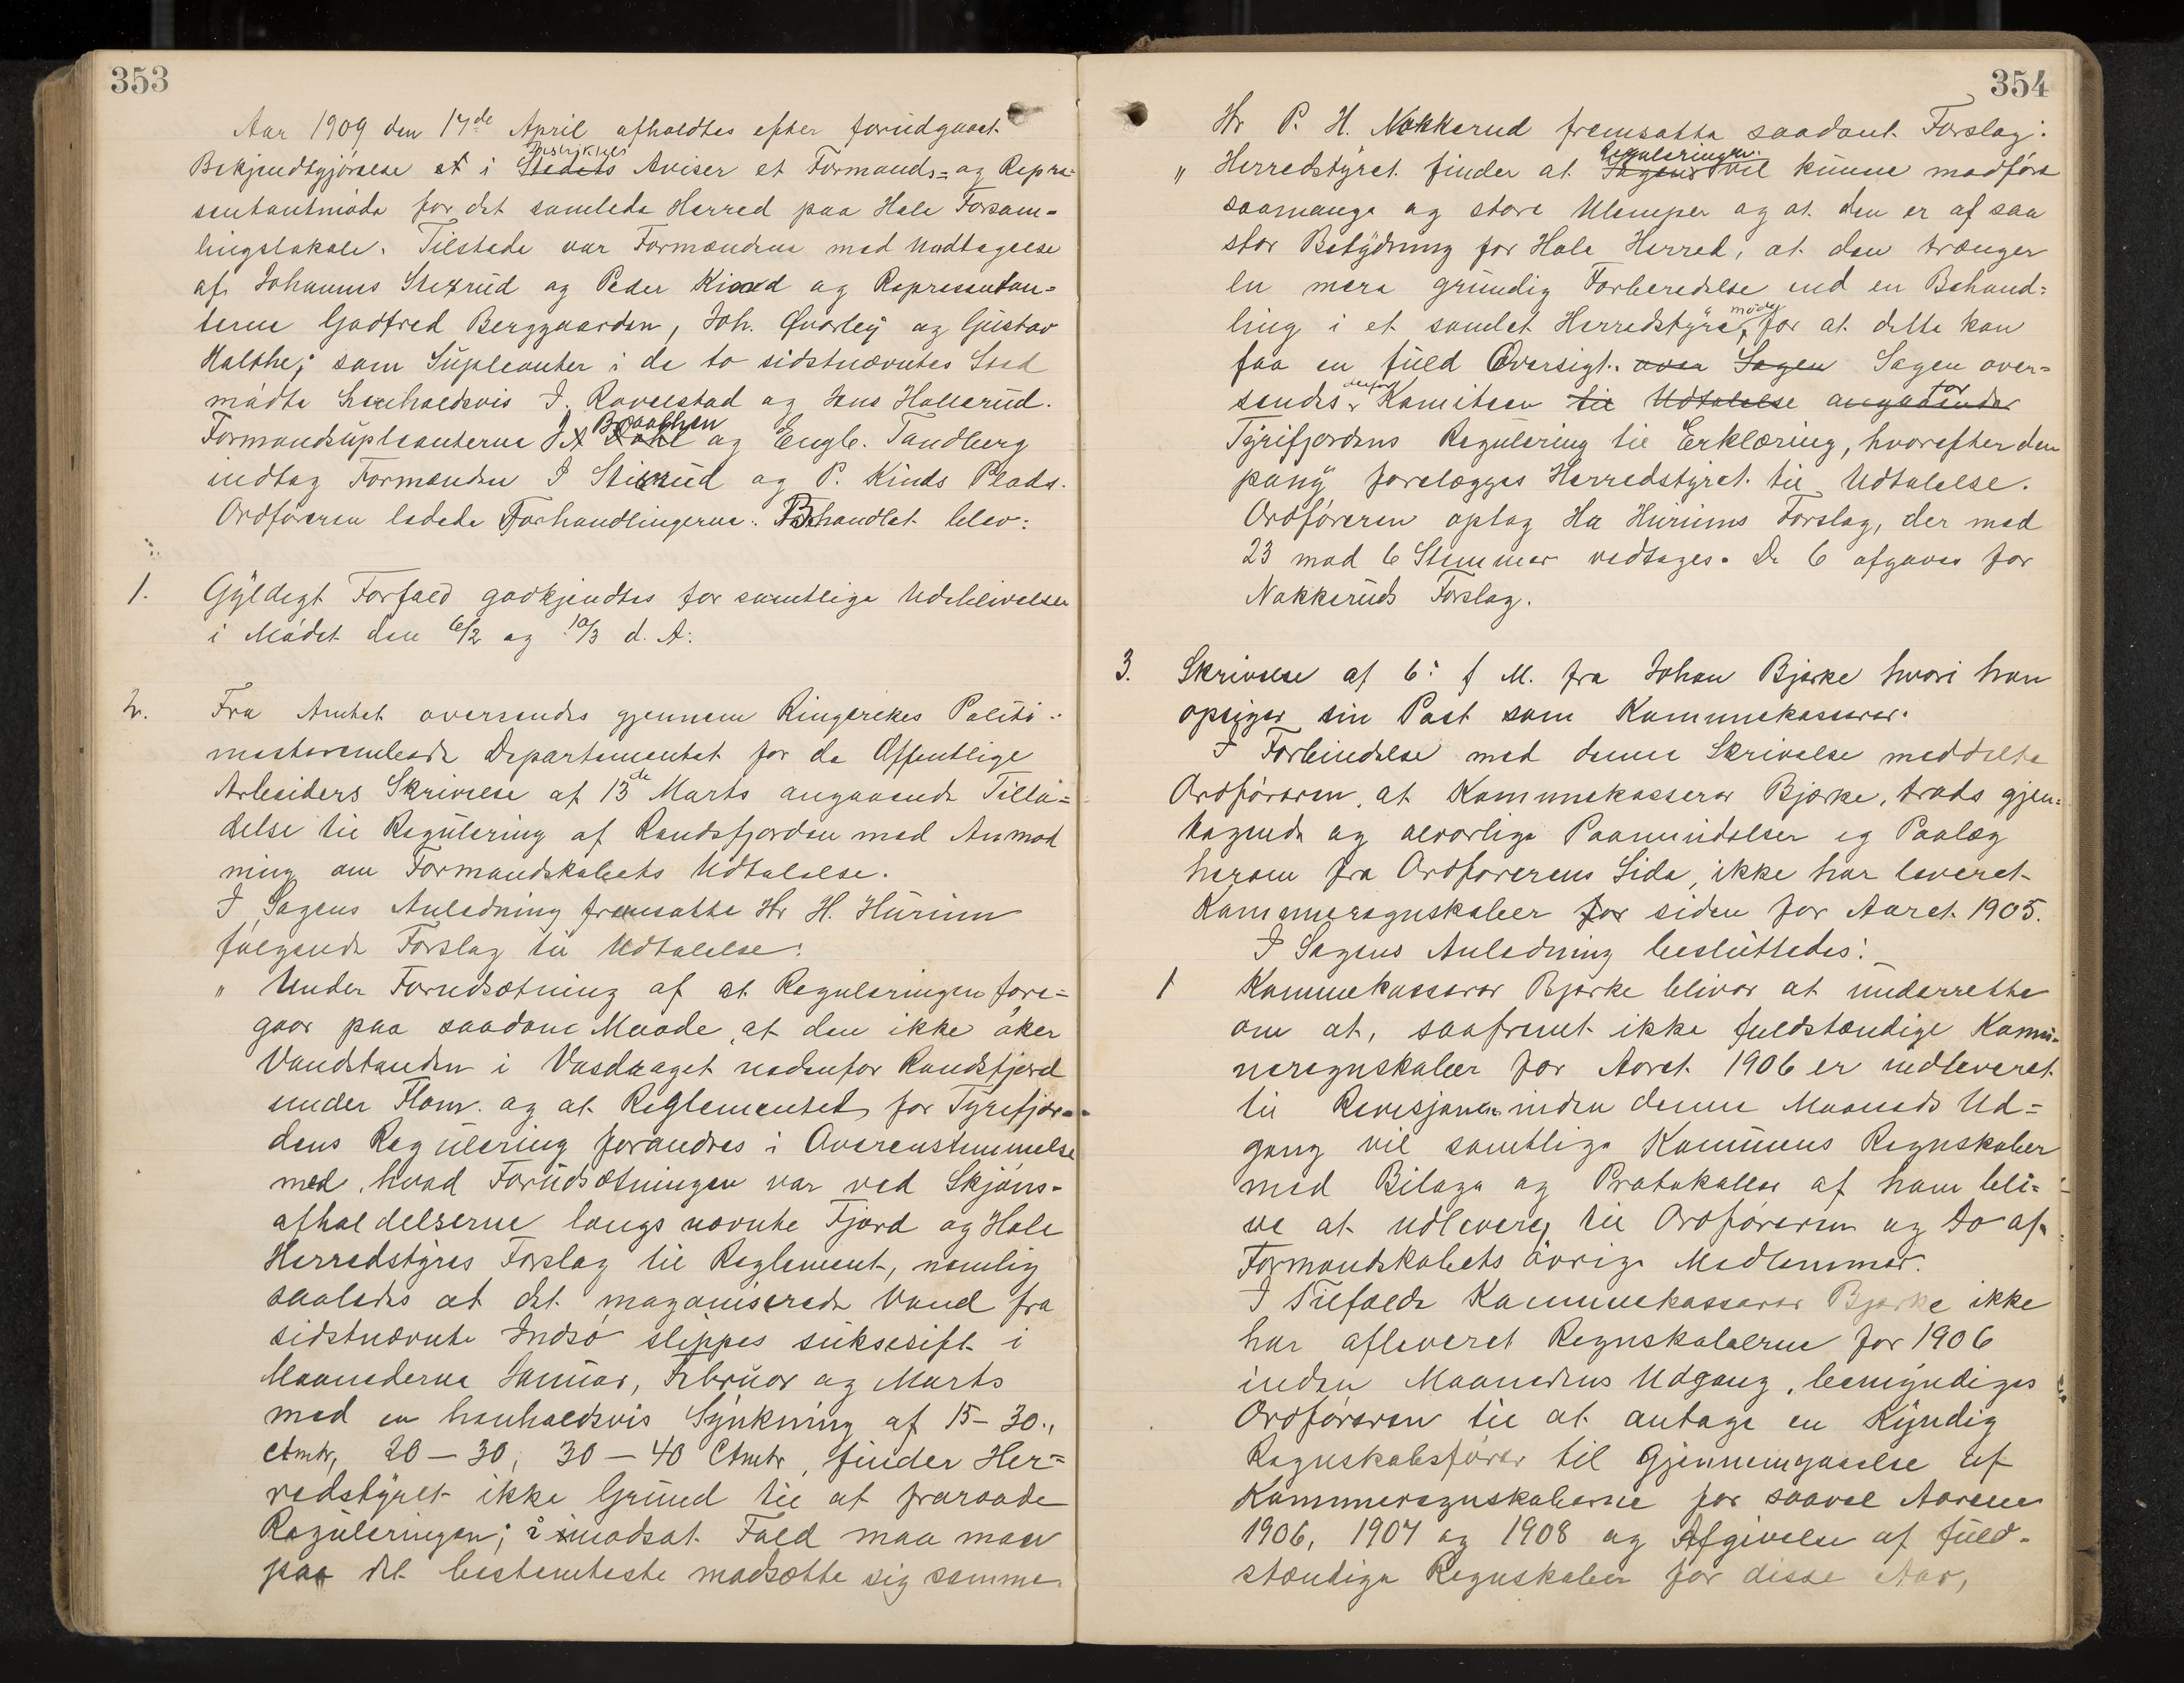 353
Aar 1909 den 17de April afholdtes efter forudgaaet
Bekjendtgjørelse et i Stedets Distriktets Aviser et Formands- og Repræ-
sentantmøde for det samlede Herred paa Hole Forsam-
lingslokale. Tilstede var Formændene med Undtagelse
af Johannes Stixrud og Peder Kind og Repræsentan-
terne Godfred Berggaarden, Joh. Qvarley og Gustav
Malthe; som Supleanter i de to sidstnævntes Sted
mødte henholdsvis J. Rovelstad og Jens Hollerud.
Formandsupleanterne Dahl Braathen og Engb. Tandberg
indtog Formændene J Stixrud og P. Kinds Plads.
Ordføreren ledede Forhandlingerne. Behandlet blev:
1. Gyldigt Forfald godkjendtes for samtlige Udeblivelser
i Mødet den 6/2 og 10/3 d. A.
2. Fra Amtet oversendes gjennem Ringerikes Politi-
mesterembede Departementet for de Offentlige
Arbeiders Skrivelse af 13de Marts angaaende Tilla-
delse til Regulering af Randsfjorden med Anmod
ning om Formandskabets Udtalelse.
I Sagens Anledning fremsatte Hr H. Hurum
følgende Forslag til Udtalelse:
" Under Forudsætning af at Reguleringen fore-
gaar paa saadanne Maade, at den ikke øker
Vandstanden i Vasdraget nedenfor Randsfjord
under Flom. og at Reglementet for Tyrifjor-
dens Regulering forandres i Overenstemmelse
med, hvad Forudsætningen var ved Skjøns-
afholdelserne langs nævnte Fjord og Hole
Herredstyres Forslag til Reglement, nemlig
saaledes at det maganiserede Vand fra
sidstnævnte Indsø slippes suksesift i
Maanederne Januar, Februar og Marts
med en henholdsvis Synkning af 15-30.,
ctmtr, 20-30, 30-40 Ctmtr, finder Her-
redstyret ikke Grund til at fraraade
Reguleringen; i imodsat Fald maa man
paa det bestemteste modsætte sig samme.
354
Hr P. H. Nakkerud fremsatte saadant Forslag:
" Herredstyret finder at Sagens Reguleringen vil kunne medføre
saamange og store Ulemper og at den er af saa
stor Betydning for Hole Herred, at den trænger
en mere grundig Forberedelse end en Behand-
ling i et samlet Herredstyremøde, for at dette kan
faa en fuld Oversigt. over Sagen Sagen over-
sendes derfor Komiteen til Udtalelse angaaende for
Tyrifjordens Regulering til Erklæring, hvorefter den
paany forelægges Herredstyret til Udtalelse.
Ordføreren optog Hr Hurums Forslag, der med
23 mod 6 Stemmer vedtages. De 6 afgaves for
Nakkeruds Forslag.
3. Skrivelse af 6. f M. fra Johan Bjerke hvori han
opsiger sin Post som Kommunekasserer.
I Forbindelse med denne Skrivelse meddelte
Ordføreren, at Kommunekasserer Bjerke, trods gjen-
tagende og alvorlige Paamindelser og Paalæg
herom fra Ordførerens Side, ikke har leveret
Kommuneregnskaber for siden for Aaret 1905.
I Sagens Anledning besluttedes:
1 Kommunekasserer Bjerke bliver at underrette
om at, saafremt ikke fuldstændige Kommu-
neregnskaber for Aaret 1906 er indleveret
til Revisjonen inden denne Maaneds Ud-
gang vil samtlige Kommunens Regnskaber
med Bilage og Protokoller af ham bli-
ve at udlevere til Ordføreren og to af
Formandskabets øvrige Medlemmer.
I Tilfælde Kommunekasserer Bjerke ikke
har afleveret Regnskaberne for 1906
inden Maanedens Udgang, bemyndiges
Ordføreren til at antage en kyndig
Regnskabsfører til Gjennemgaaelse af
Kommuneregnskaberne for saavel Aarene
1906, 1907 og 1908 og Afgivelse af fuld-
stændige Regnskaber for disse Aar,